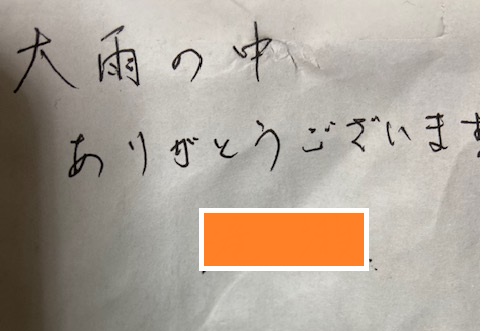 大雨の中
ありがとうございます